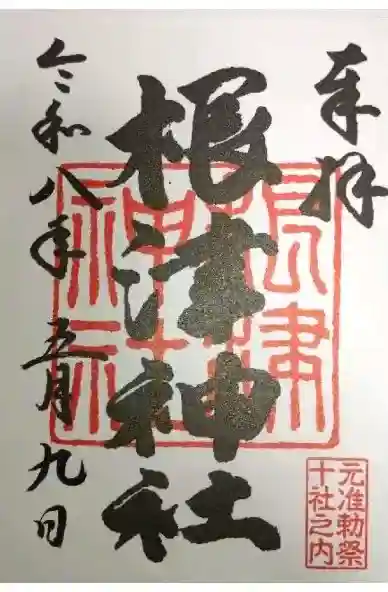 奉拝
根津神社
令和八年 五月九日
根津
神社
元准勅祭
十社之内